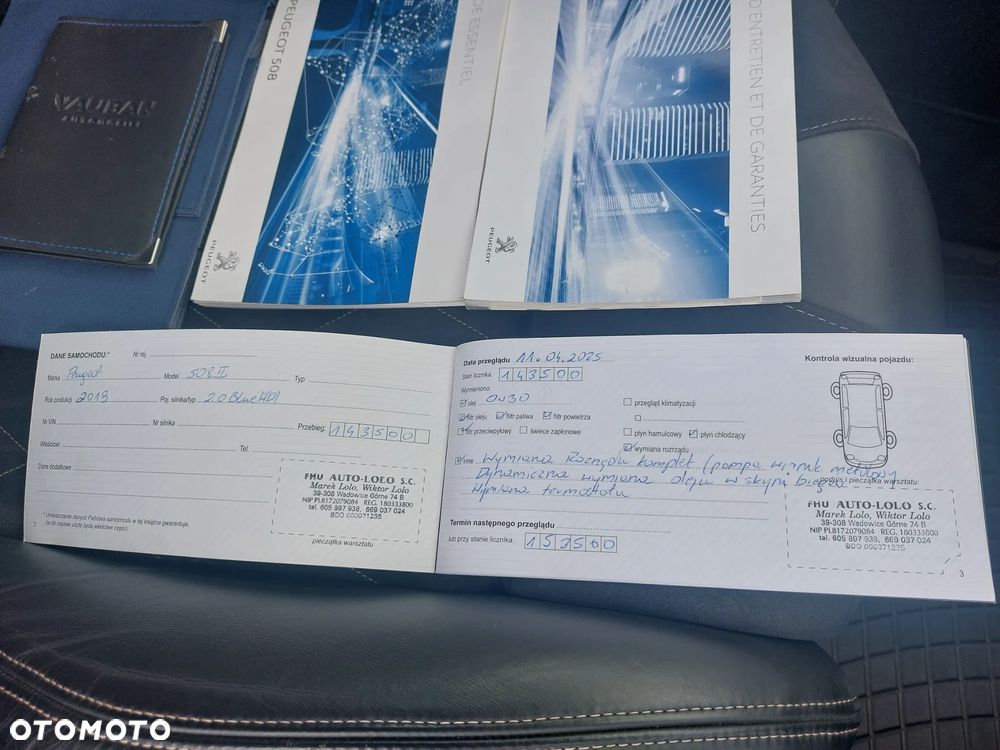 VAUBAN
AUTOROUTE
PEUGEOT 508
DE ESSENTIEL
PEUGEOT
D'ENTRETIEN ET DE GARANTIES
PEUGEOT
DANE SAMOCHODU:*
Nr rej.
Marka Peugeot Model 508 II Typ
Rok produkcji 2019 Poj. silnika/typ 2.0 BlueHDI
Nr VIN Nr silnika Przebieg: 143500
Właściciel Tel.
Dane dodatkowe
FHU AUTO-LOLO S.C.
Marek Lolo, Wiktor Lolo
39-308 Wadowice Górne 74 B
NIP PL8172079084 REG. 180333800
tel. 605 897 938, 669 037 024
BDO 000071235
* Umieszczenie danych Państwa samochodu w tej książce gwarantuje,
że do napraw użyte będą właściwe części
pieczątka warsztatu
2
Data przeglądu 11.04.2025
Stan licznika: 143500
Wymieniono:
olej 0W30
filtr oleju filtr paliwa filtr powietrza
filtr przeciwpyłowy świece zapłonowe
przegląd klimatyzacji
płyn hamulcowy płyn chłodzący
wymiana rozrządu
inne Wymiana Rozrządu komplet (pompa wirnik metalowy)
Dynamiczna wymiana oleju w skrzyni biegów
Wymiana termostatu
Kontrola wizualna pojazdu:
podpis i pieczątka warsztatu:
FHU AUTO-LOLO S.C.
Marek Lolo, Wiktor Lolo
39-308 Wadowice Górne 74 B
NIP PL8172079084 REG. 180333800
tel. 605 897 938, 669 037 024
BDO 000071235
Termin następnego przeglądu
lub przy stanie licznika: 153500
3
OTOMOTO